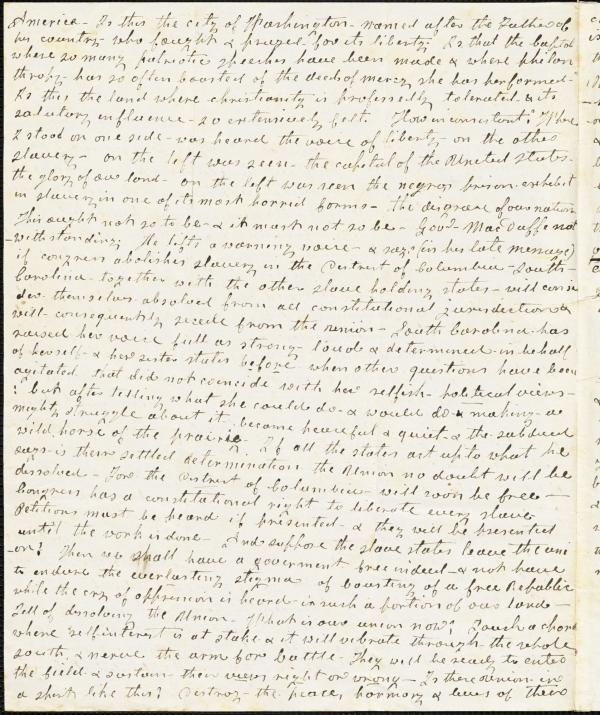 America - Is this the city of Washington - named after the Father of
his country - who fought & prayed for its liberty. Is that the Capitol
where so many patriotic speeches have been made & where philan
thropy has so often boasted of the deeds of mercy she has performed -
Is this the land where christianity is professedly tolerated & its
salutary influence - so extensively felt. How inconsistent! Where
I stood on one side - was heard the voice of liberty - on the other
slavery - on the left was seen - the capital of the United States -
the glory of our land - on the left was seen the negros prison - exhibit
in slavery in one of its most horrid forms - the disgrace of our nation
This ought not so to be - & it must not so be - Govr. Mac Duffe not
-withstanding. He lifts a warning voice - & says (in his late message)
if congress abolishes slavery in the District of Columbia - South -
Carolina - together with the other slave holding states - will consi
der themselves absolved from all constitutional jurisdiction &
will - consequently secede from the union - South Carolina has
raised her voice full as strong - loud & determined in behalf
of herself & her sister states before - when other questions have been
agitated that did not coincide with her selfish - political views -
but after telling what she could do - & would do - & making - a
mighty struggle about it became peaceful & quiet - & the subdued
wild horse of the prairie. If all the states act up to what he
says is their settled determination the Union no doubt will be
dissolved - For the District of Columbia - will soon be free -
Congress has a constitutional right to liberate every slave
Petitions must be heard if presented - & they will be presented
until the work is done - And suppose the slave states leave the uni
-on? Then we shall have a government free indeed - & not have
to endure the everlasting stigma of boasting of a free Republic
while the cry of oppression is heard in such a portion of our land -
Tell of dissolving the Union - What is our union now? Touch a chord
where self interest is at stake & it will vibrate through the whole
south, & nerve the arm for battle - They will be ready to enter
the field & sustain their views right or wrong - Is there union in
a spirit like this? Destroy - the peace, harmony & lives of their